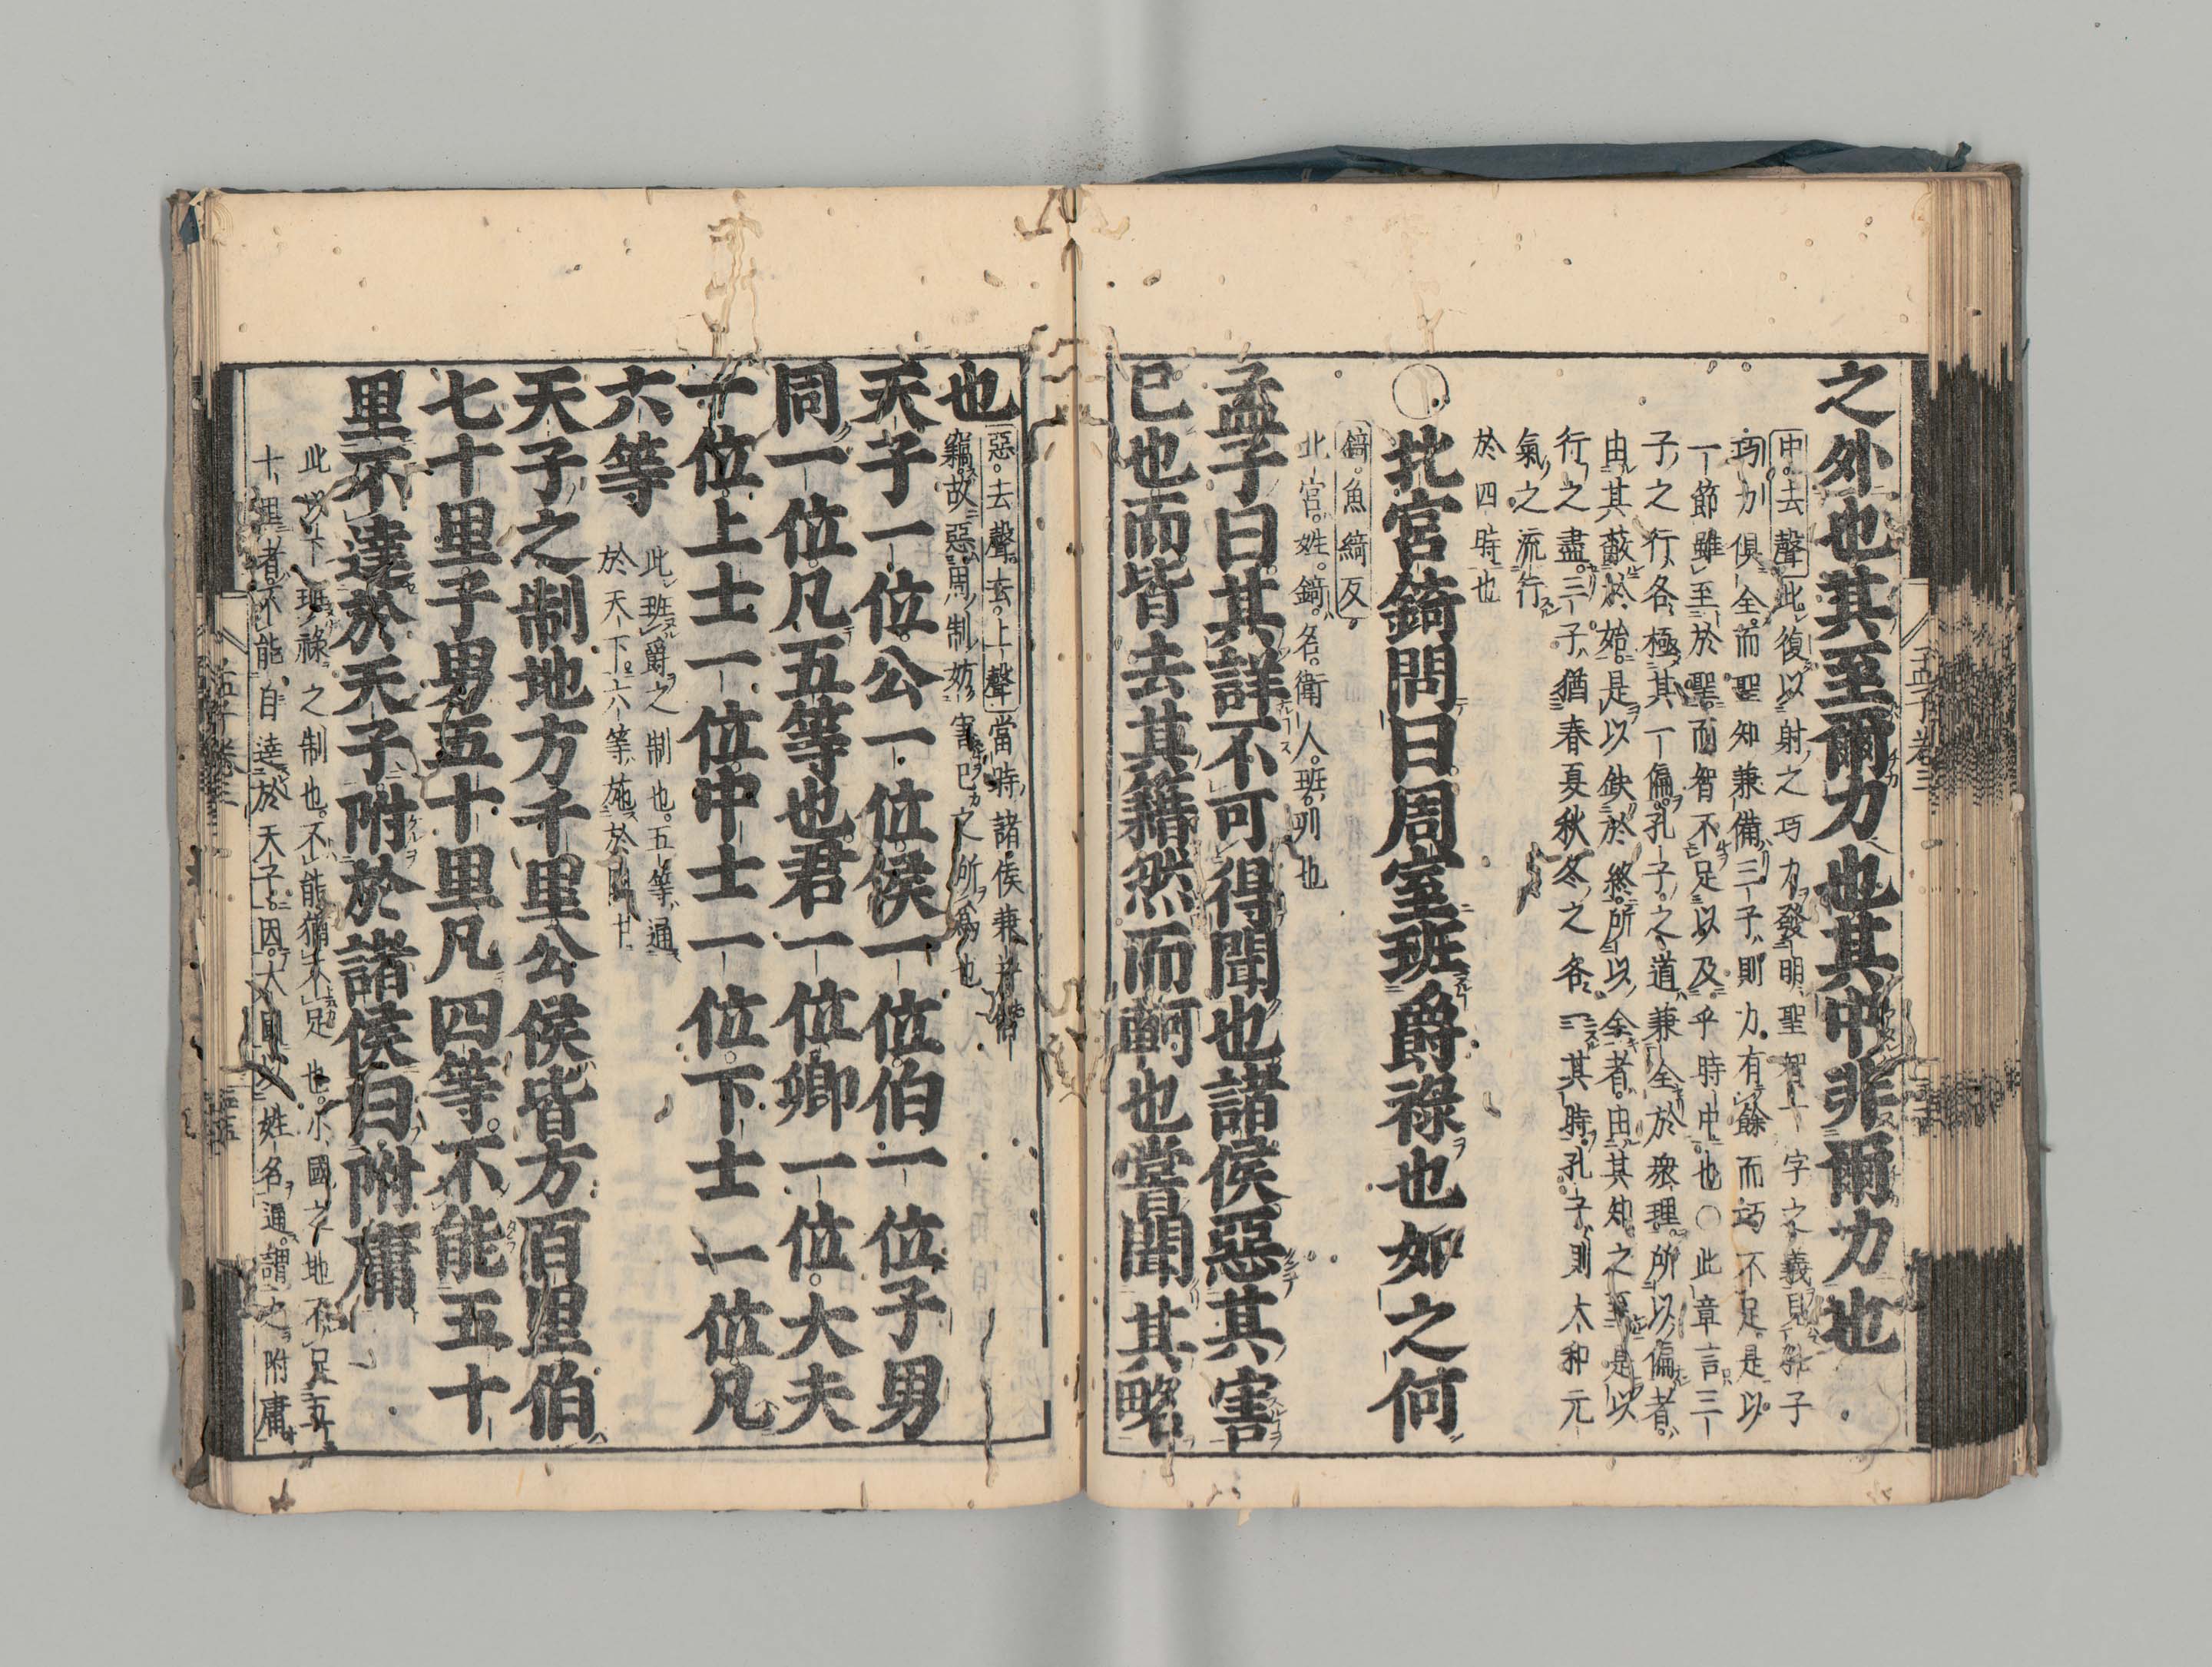 之外也其至爾力也其中非爾力也
中去聲此復以射之巧力發明聖智二字之義見孔子
巧力俱全而聖知兼備三子則力有餘而巧不足是以
一節雖至於聖而智不足以及乎時中也○此章言三
子之行各極其一偏孔子之道兼全於衆理所以偏者
由其蔽於始是以缺於終所以全者由其知之至是以
行之盡三子猶春夏秋冬之各一其時孔子則太和元
氣之流行
於四時也
○北宮錡問曰周室班爵祿也如之何
錡魚綺反
北宮姓錡名衛人班列也
孟子曰其詳不可得聞也諸侯惡其害
已也而皆去其籍然而軻也嘗聞其略
也
惡去聲去上聲當時諸侯兼并僭
竊故惡周制妨害已之所爲也
天子一位公一位侯一位伯一位子男
同一位凡五等也君一位卿一位大夫
一位上士一位中士一位下士一位凡
六等
此班爵之制也五等通
於天下六等施於國中
天子之制地方千里公侯皆方百里伯
七十里子男五十里凡四等不能五十
里不達於天子附於諸侯曰附庸
此以下班祿之制也不能猶不足也小國之地不足五
十里者不能自達於天子因大國以姓名通謂之附庸
孟子卷三